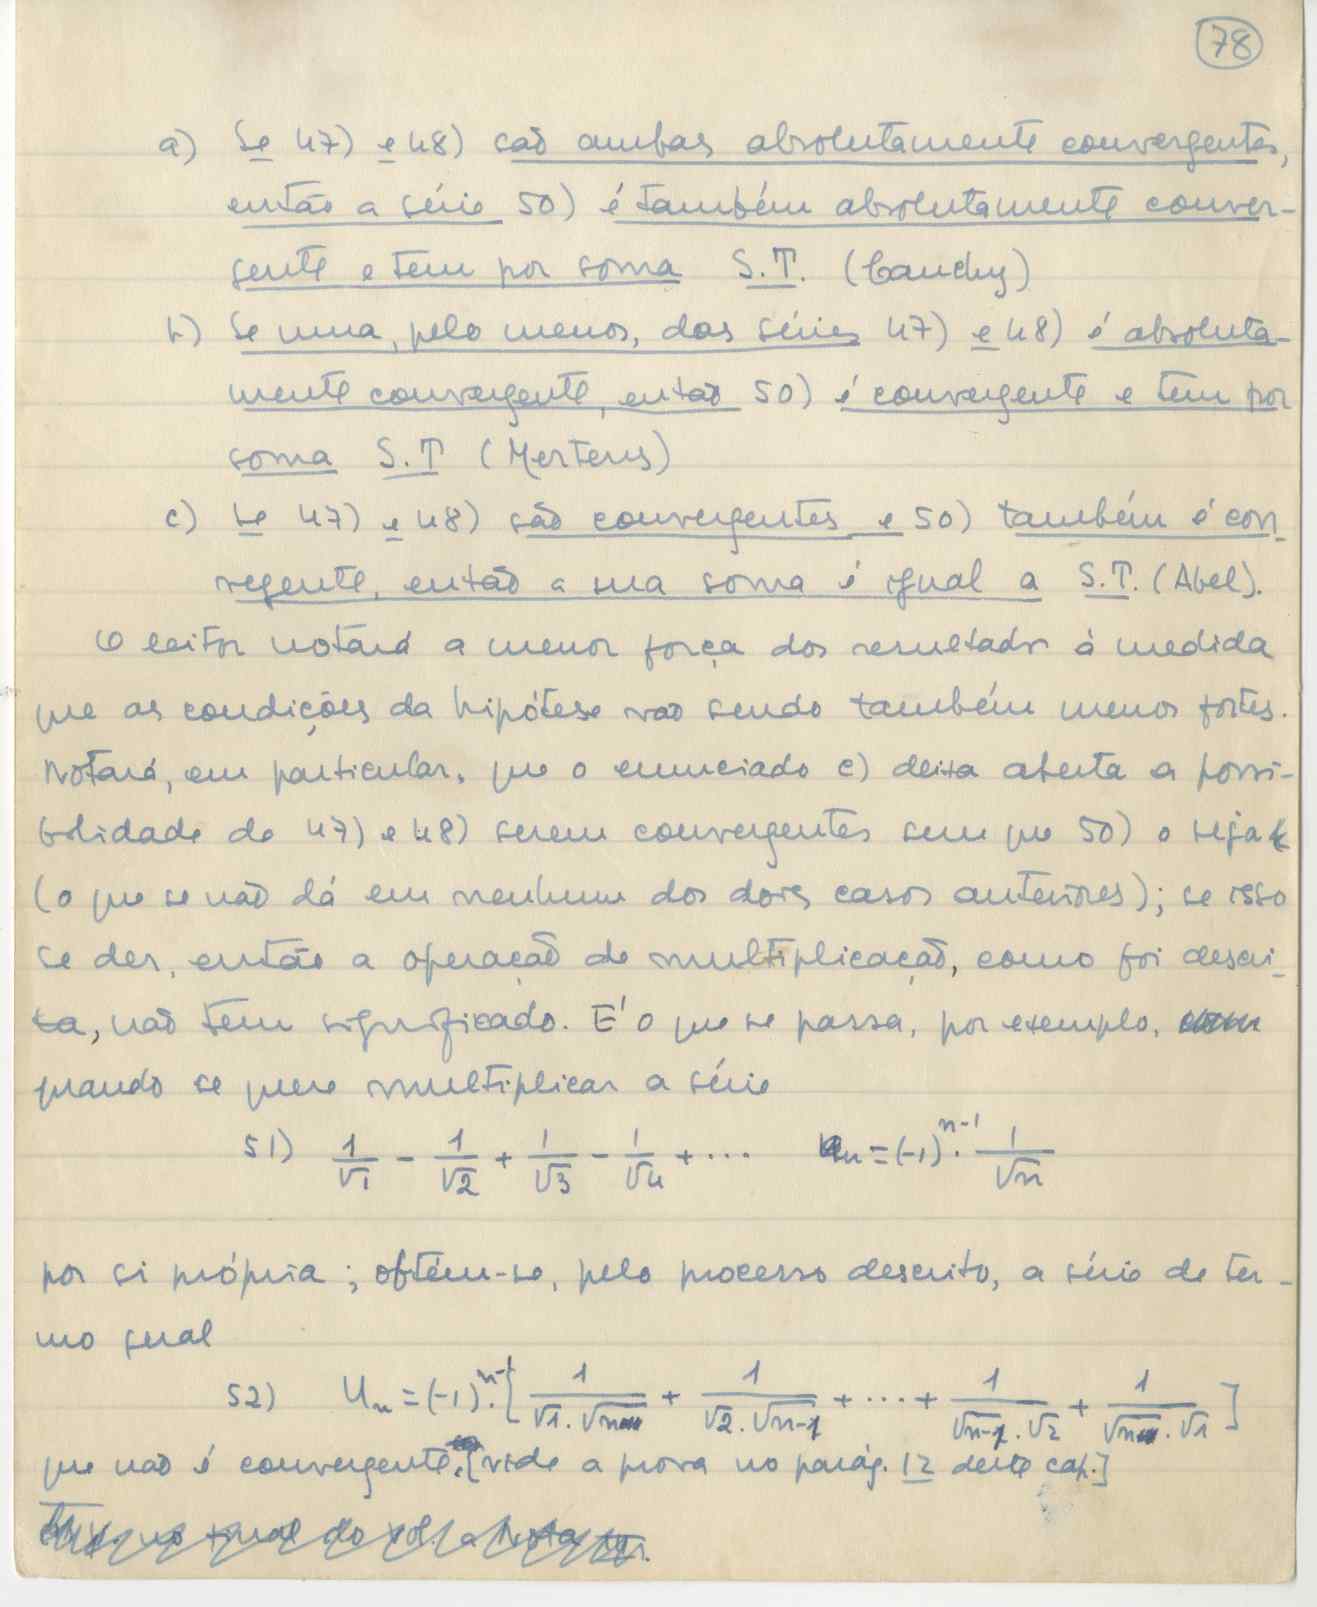 78
a) Se 47) e 48) são ambas absolutamente convergentes,
então a série 50) é também absolutamente conver-
gente e tem por soma S.T. (Cauchy)
b) Se uma, pelo menos, das séries 47) e 48) é absoluta-
mente convergente, então 50) é convergente e tem por
soma S.T (Mertens)
c) Se 47) e 48) são convergentes e 50) também é con-
vegente, então a sua soma é igual a S.T. (Abel).
O leitor notará a menor força dos resultados à medida
que as condições da hipótese vão sendo também menos fortes.
Notará, em particular, que o enunciado c) deixa aberta a possi-
bilidade de 47) e 48) serem convergentes sem que 50) o seja
(o que se não dá em nenhum dos dois casos anteriores); se isso
se der, então a operação de multiplicação, como foi descri-
ta, não tem significado. E' o que se passa, por exemplo,
quando se quere multiplicar a série
51) 1/√1 - 1/√2 + 1/√3 - 1/√4 + ... uₙ = (-1)ⁿ⁻¹ . 1/√n
por si própria; obtém-se, pelo processo descrito, a série de ter-
mo geral
52) Uₙ = (-1)ⁿ⁻¹ . [1/(√1 . √n) + 1/(√2 . √n-1) + ... + 1/(√n-1 . √2) + 1/(√n . √1)]
que não é convergente. [vide a prova no parág. 12 deste cap.]